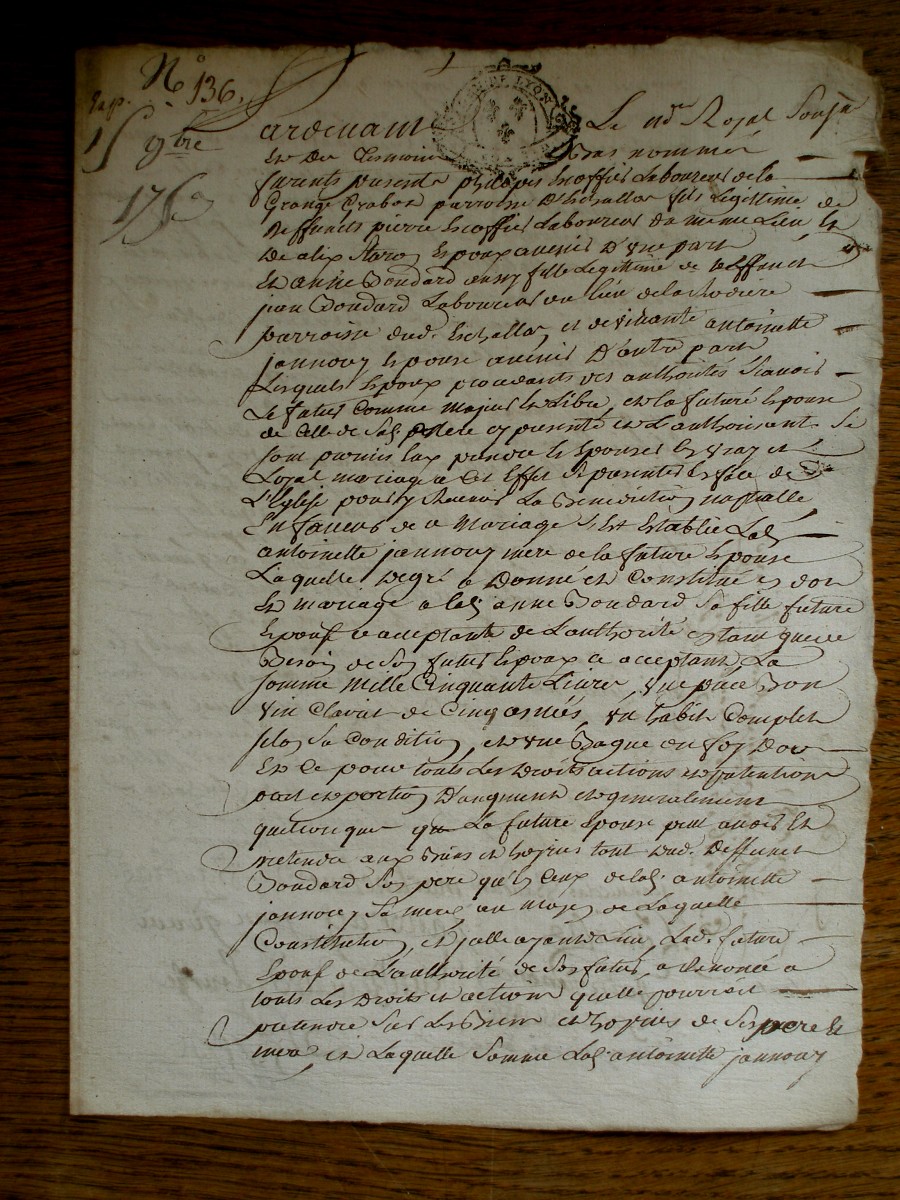 N° 136.
Exp.
15 9bre
175
GEN DE LYON
Pardevant Le nore Royal Soussé
Et Des Temoins Bas nommés
furents presents philipes Escoffier Laboureur de la
Grange Crabot parroisse D'Eschallas fils Legittime de
Deffuncts pierre Escoffier Laboureur du meme Lieu Et
De alix Epoux avenir D'Une part
Et anne Boudard aussy fille Legittime de deffunct
jean Boudard Laboureur du lieu de la Rodiere
parroisse dud. Eschallas, et de vivante antoinette
jannouy Epouse avenir D'autre part
Lesquels Epoux procedants des authorités Scavoir
Le futur comme Majeur Et Libre, et la future Epouse
de Celle de Sad. mere cy presente et L'authorisant Se
sont promis Eux prendre et Epouser En vray et
Loyal mariage a Cet Effet Se presenter En face de Ste
L'Eglise pour y Recevoir La Benediction nuptialle
En faveur de ce Mariage S'Est Establie Lad.
antoinette jannouy mere de la future Epouse
Laquelle De gré a Donné et Constitué en dot
Et mariage a lad. anne Boudard Sa fille future
Epouse ce acceptante de L'authorité en tant que de
Besoin de Son futur Epoux ce acceptant La
somme Mille Cinquante Livres, une piece Bon
vin Clairet de Cinq anées, un habit Complet
selon Sa Condition, et une Bague ou foy D'or
Et Ce pour touts Les Droits actions et pretentions
part et portion D'augment et generalement
quelconque que La future Epouse peut avoir Et
pretendre aux Biens et hoyries tant dud. Deffunct
Boudard Son pere qu'En Ceux de lad. antoinette
jannouy Sa mere, au moyen de Laquelle
Constitution, et jcelle ayant Lieu, Lad. future
Epouse de L'authorité de Son futur, a Renoncé a
touts Les Droits et actions quelle pourroit
pretendre Sur Les Biens et hoyries de Ses pere Et
mere, et Laquelle Somme Lad. antoinette jannouy